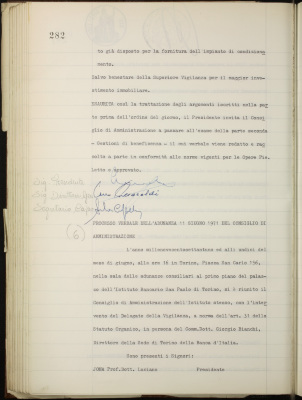 282
to già disposto per la fornitura dell'impianto di condiziona-
mento.
Salvo benestare della Superiore Vigilanza per il maggior inve-
stimento immobiliare.
ESAURITA così la trattazione degli argomenti iscritti nella par-
te prima dell'ordine del giorno, il Presidente invita il Consi-
glio di Amministrazione a passare all'esame della parte seconda
- Gestioni di beneficenza - il cui verbale viene redatto a re-
gola a parte in conformità alle norme vigenti per le Opere Pie.
Letto e approvato.
Sig. Presidente
Sig. Direttore
Segretario
(6)
PROCESSO VERBALE DELL'ADUNANZA 11 GIUGNO 1971 DEL CONSIGLIO DI
AMMINISTRAZIONE
L'anno millenovecentosettantuno ed alli undici del
mese di giugno, alle ore 16 in Torino, Piazza San Carlo 156,
nella sala delle adunanze consiliari al primo piano del palaz-
zo dell'Istituto Bancario San Paolo di Torino, si è riunito il
Consiglio di Amministrazione dell'Istituto stesso, con l'inter-
vento del Delegato della Vigilanza, a norma dell'art. 11 dello
Statuto Organico, in persona del Comm.Dott. Giorgio Bianchi,
Direttore della Sede di Torino della Banca d'Italia.
Sono presenti i Signori:
JONA Prof.Dott. Luciano Presidente